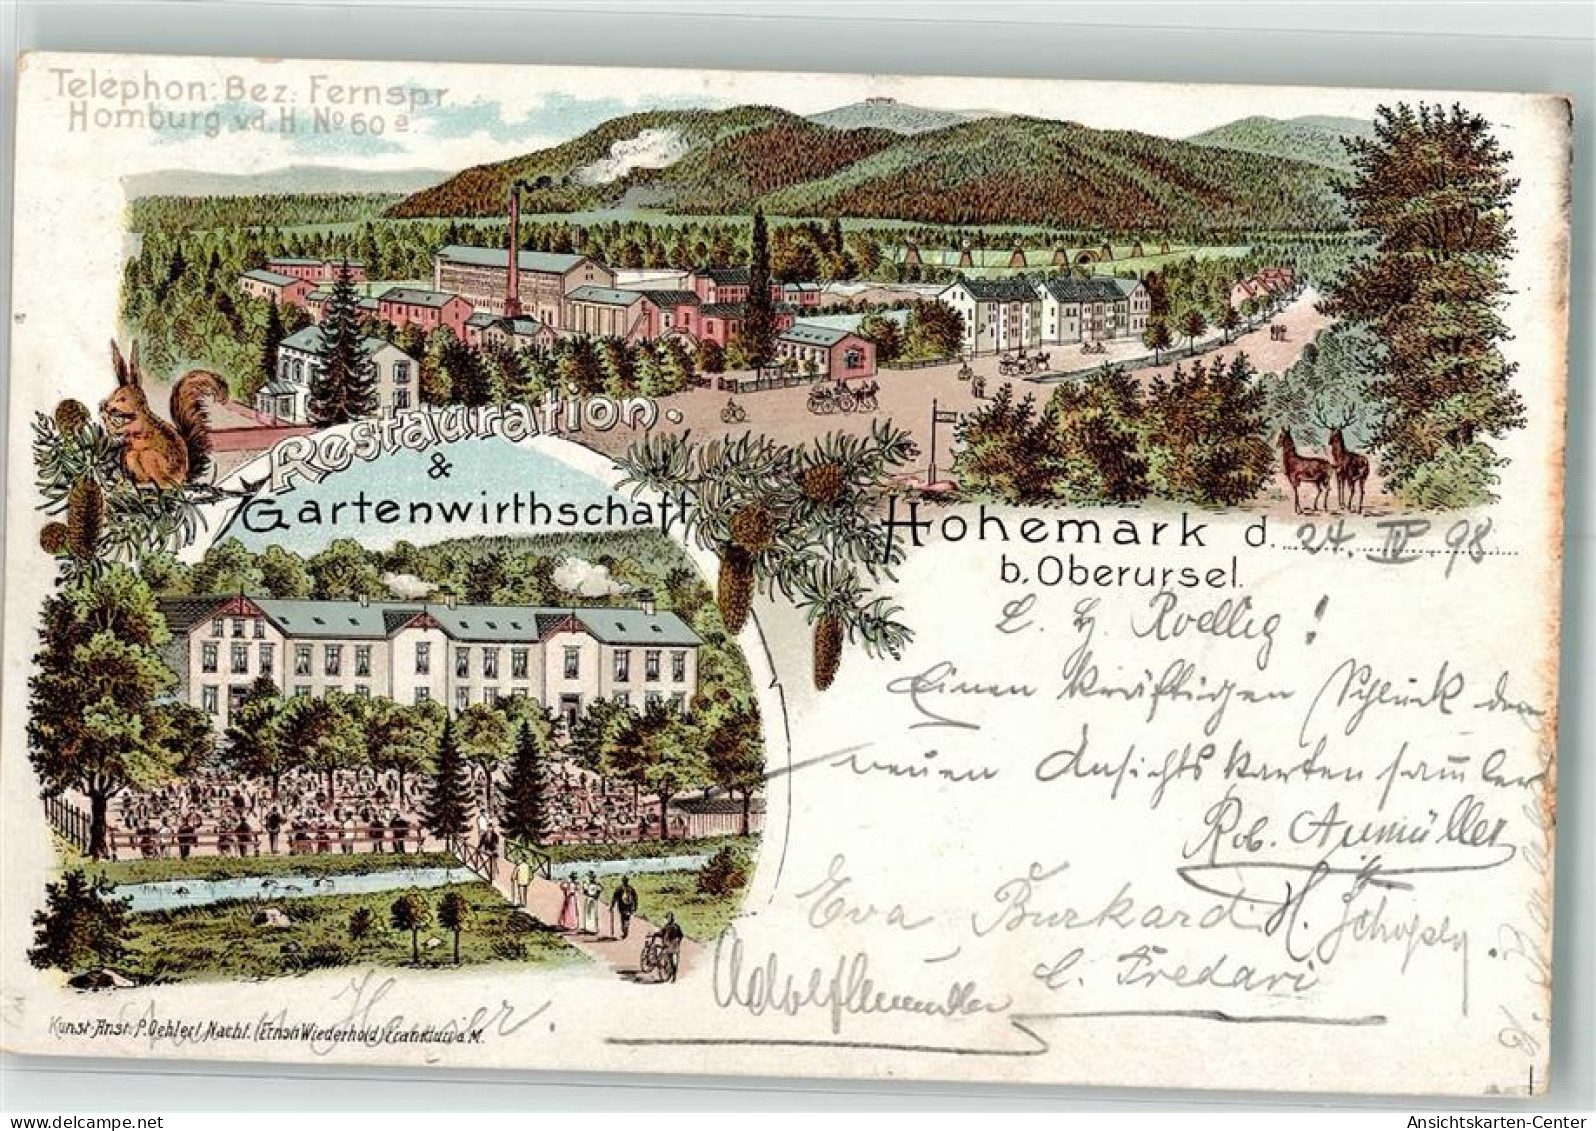 Telephon: Bez: Fernspr.
Homburg v.d.H. No 60 a.
Restauration
&
Gartenwirthschaft
Hohemark d. 24. IV 98
b. Oberursel.
L. H. Roellig!
Einen kräftigen Schluck dem
neuen Ansichtskartensammler
Rob. Aumüller
Eva Burkard. H.
C. Fredari
Kunst-Anst. P. Oehlert Nachf. (Ernst Wiederhold) Frankfurt a. M.
Ansichtskarten-Center